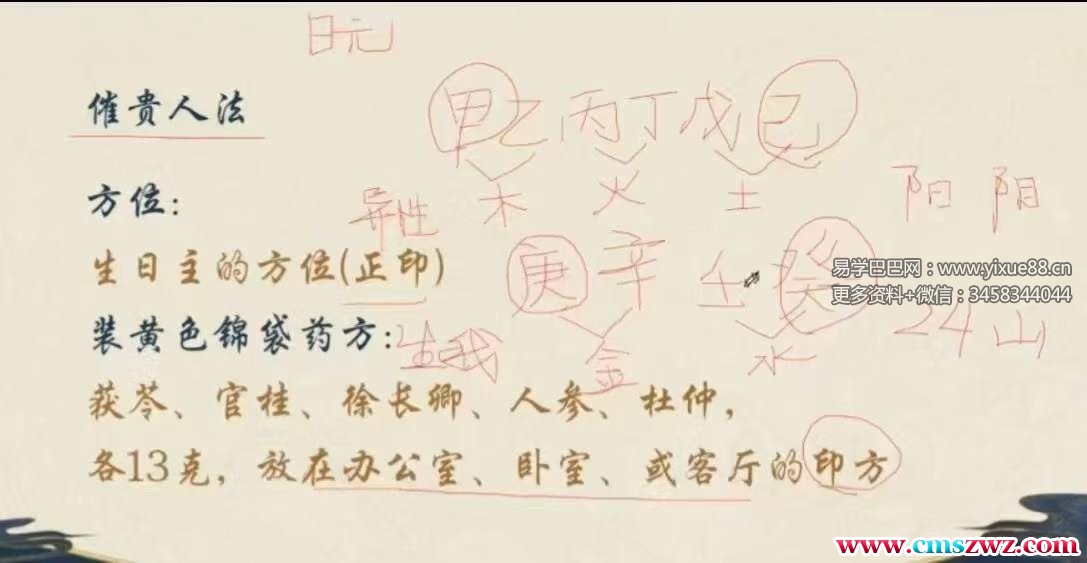 日元
催贵人法
甲乙丙丁戊己
方位：
异性 木 火 土 阳 阴
生日主的方位(正印)
庚辛 壬癸
易学巴巴网：www.yixue88.cn
更多资料+微信：3458344044
装黄色锦袋药方：
生我 金 水 24山
茯苓、官桂、徐长卿、人参、杜仲，
各13克，放在办公室、卧室、或客厅的印方
www.cmszwz.com